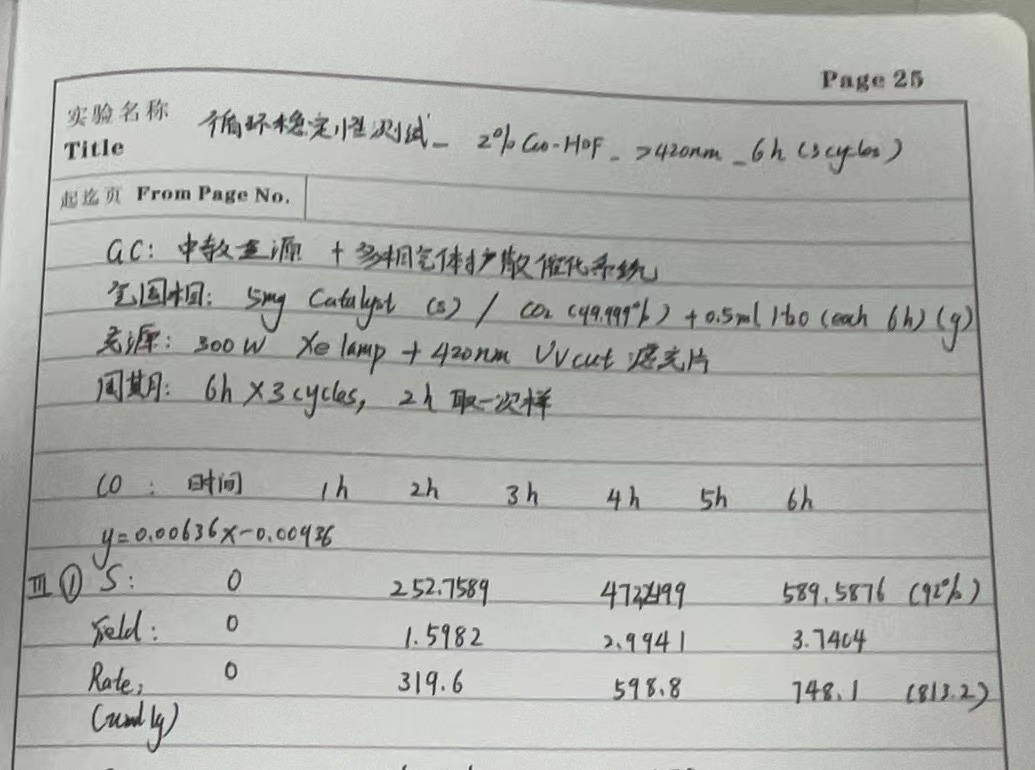 Page 25
实验名称
Title
循环稳定性测试_ 2% Co-HOF_ >420nm _6h (3cycles)
起迄页 From Page No.
GC: 中教金源 + 多相气体扩散催化系统
氛围相: 5mg Catalyst (s) / CO2 (99.999%) + 0.5ml H2O (each 6h) (g)
光源: 300W Xe lamp + 420nm UVcut 滤光片
周期: 6h×3cycles, 2h 取一次样
CO : 时间 1h 2h 3h 4h 5h 6h
y=0.00636x-0.00936
III ① S: 0 252.7589 589.5876 (92%)
Yield: 0 1.5982 2.9941 3.7404
Rate: 0 319.6 598.8 748.1 (813.2)
(umol/g)